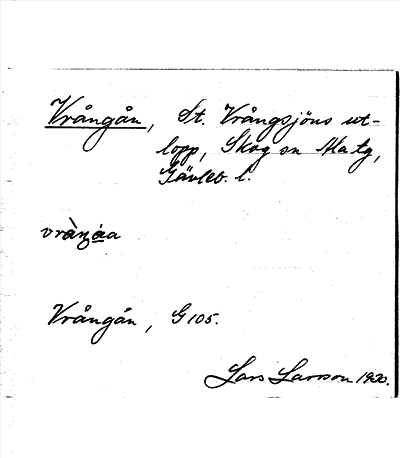 Vrångån, St. Vrångsjöns ut-
lopp, Skog sn Ala tg,
Gävleb. l.
Vrångån, G 105.
Lars Larsson 1920.